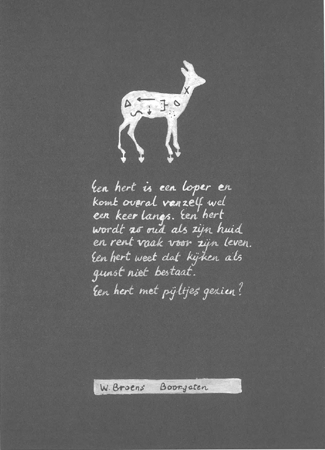 Een hert is een loper en
komt overal vanzelf wel
een keer langs. Een hert
wordt zo oud als zijn huid
en rent vaak voor zijn leven.
Een hert weet dat kijken als
gunst niet bestaat.
Een hert met pijltjes gezien?
W. Broens Boorgaten